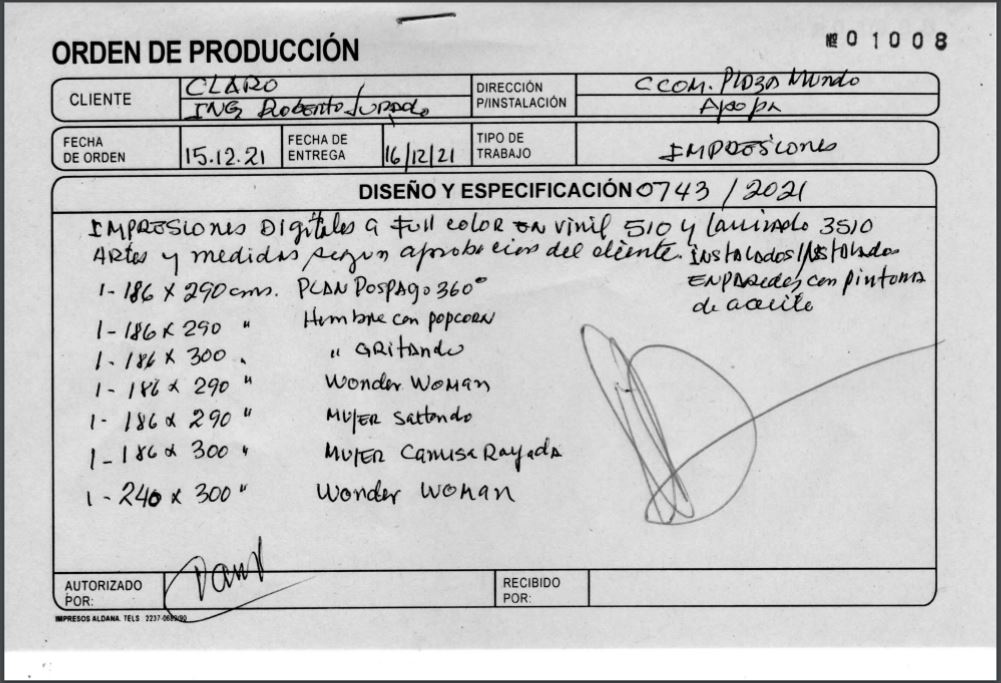 ORDEN DE PRODUCCIÓN
Nº 01008
CLIENTE
CLARO
ING Roberto Jurado
DIRECCIÓN P/INSTALACIÓN
CCOM. Plaza Mundo
Apopa
FECHA DE ORDEN
15.12.21
FECHA DE ENTREGA
16/12/21
TIPO DE TRABAJO
IMPRESIONES
DISEÑO Y ESPECIFICACIÓN 0743 / 2021
IMPRESIONES Digitales a Full color en vinil 510 y laminado 3510
Artes y medidas segun aprobacion del cliente. Instalados/Instalados
EN PAREDES con pintura
de aceite
1-186 x 290 cms. PLAN POSPAGO 360°
1-186 x 290 " Hombre con popcorn
1-186 x 300 " " GRITANDO
1-186 x 290 " Wonder Woman
1-186 x 290 " MUJER Saltando
1-186 x 300 " MUJER Camisa Rayada
1-240 x 300 " Wonder WOMAN
AUTORIZADO POR:
RECIBIDO POR:
IMPRESOS ALDANA. TELS